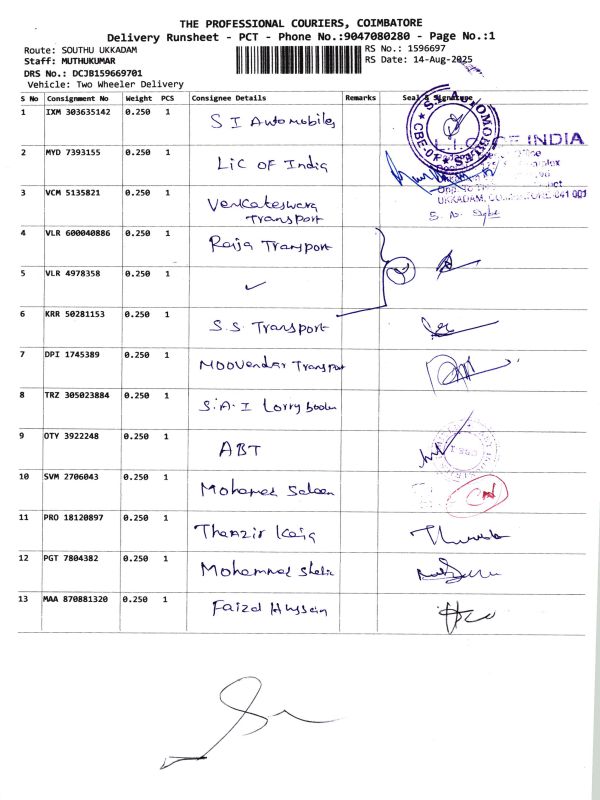 THE PROFESSIONAL COURIERS, COIMBATORE
Delivery Runsheet - PCT - Phone No.:9047080280 - Page No.:1
Route: SOUTHU UKKADAM RS No.: 1596697
Staff: MUTHUKUMAR RS Date: 14-Aug-2025
DRS No.: DCJB159669701
Vehicle: Two Wheeler Delivery
S No Consignment No Weight PCS Consignee Details Remarks Seal & Signature
1 IXM 303635142 0.250 1 S I Automobiles
2 MYD 7393155 0.250 1 LiC OF India
3 VCM 5135821 0.250 1 Venkateswara Transport
4 VLR 600040886 0.250 1 Raja Transport
5 VLR 4978358 0.250 1 ✓
6 KRR 50281153 0.250 1 S.S. Transport
7 DPI 1745389 0.250 1 Moovendar Transport
8 TRZ 305023884 0.250 1 S.A.I Lorry
9 OTY 3922248 0.250 1 ABT
10 SVM 2706043 0.250 1 Mohamed
11 PRO 18120897 0.250 1
12 PGT 7804382 0.250 1 Mohammed
13 MAA 870881320 0.250 1 Faizal Hussain
S.I. AUTOMOBILES
CBE-01
L.I.C. OF INDIA
UKKADAM, COIMBATORE-641 001